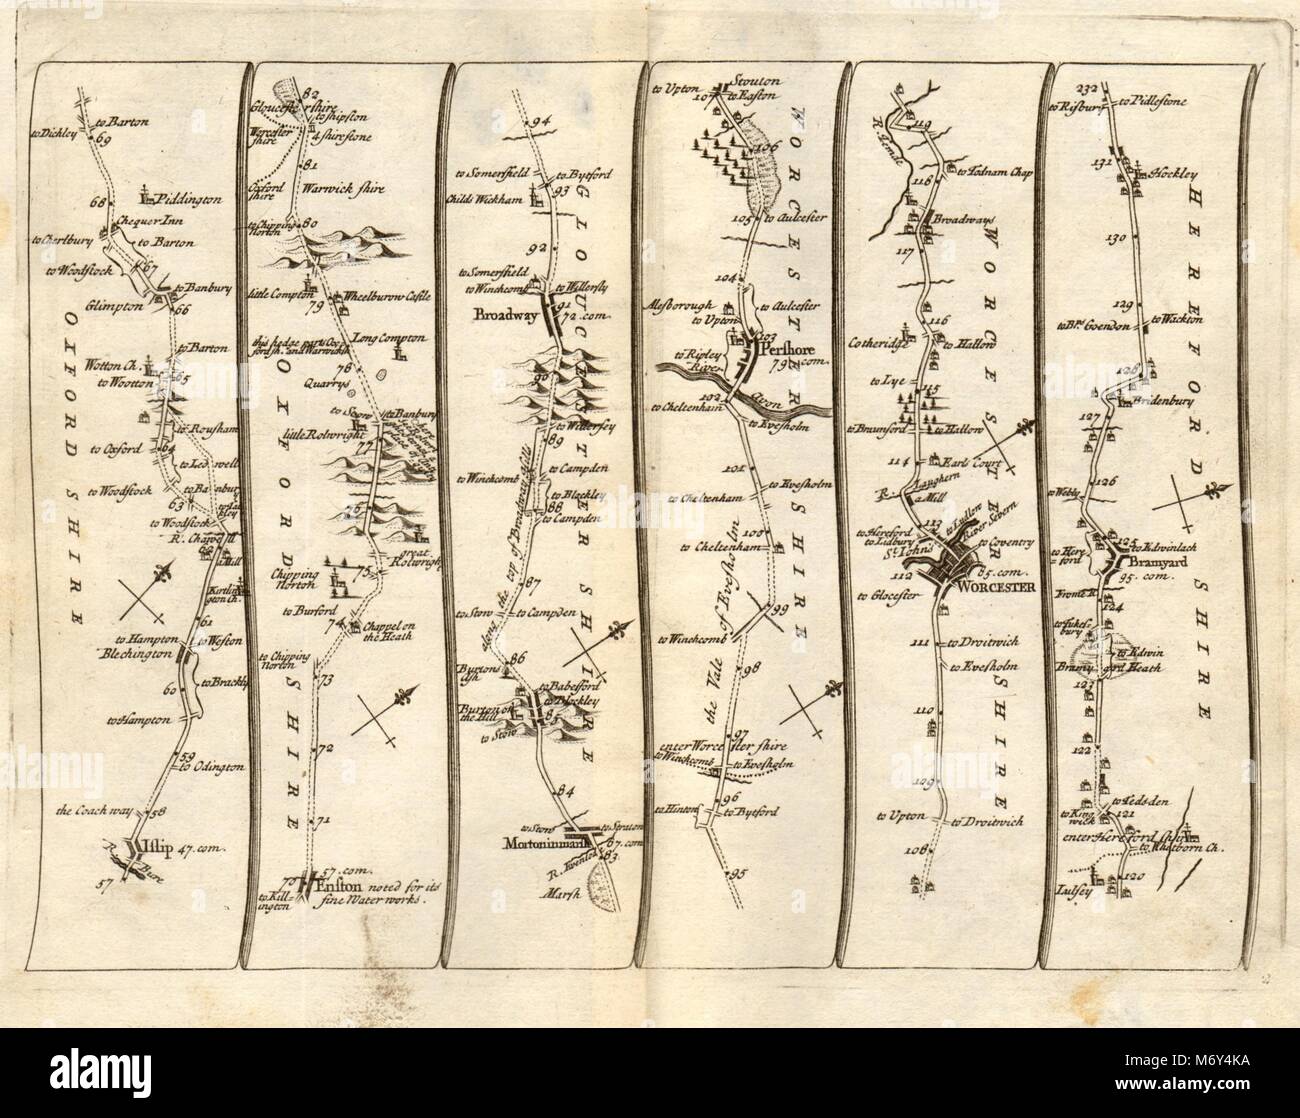 to Barton
to Dickley
69
Piddington
68
Chequer Inn
to Cherlbury
to Barton
67
to Woodstock
to Banbury
Glimpton
66
to Barton
Wotton Ch.
to Wootton
65
to Rousham
to Oxford
64
to Ledwell
to Woodstock
to Banbury
63
to Woodstock
R. Charwell
62
a Mill
Kirtlin
gton Ch.
61
to Hampton
to Weston
Blechington
to Brackly
60
to Hampton
59
to Odington
the Coach way
58
Islip 47. com.
R. Bure
57
OXFORD SHIRE
82
Gloucestershire
to Shipston
Worcester
shire
4 shire stone
81
Oxford
shire
Warwick shire
to Chipping
Norton
80
little Compton
79
Wheelburow Castle
Long Compton
this hedge parts Oxf
ford sh. and Warwicksh.
78
Quarrys
to Stow
to Banbury
little Rolwright
77
76
great
Rolwright
75
Chipping
Norton
to Burford
74
Chappel on
the Heath
to Chipping
Norton
73
72
71
57. com.
70
Enston noted for its
fine Water works.
to Kill=
ington
OXFORD SHIRE
94
to Somersfield
to Byford
93
Childs Wickham
92
to Somersfield
to Winchcomb
to Willersly
91
Broadway
72. com.
90
to Willersey
89
to Campden
to Winchcomb
to Blackley
88
to Campden
along the top of Broadway hills
87
to Stow
to Campden
86
Burtons
ash
to Babesford
to Blockley
Burton on
the Hill
85
to Stow
84
to Stow
to Straton
Mortoninmarsh
67. com.
83
R. Evenlod
Marsh
GLOUCESTER SHIRE
Stouton
to Upton
107
to Easton
106
105
to Aulcester
104
Alesborough
to Aulcester
to Upton
103
Pershore
79 com.
to Ripley
River
Avon
102
to Cheltenham
to Evesholm
101
to Evesholm
to Cheltenham
100
to Cheltenham
99
to Winchcomb
98
the Vale of Evesholm
97
enter Worcestershire
to Winchcomb
to Evesholm
96
to Hinton
to Byford
95
WORCESTER SHIRE
R. Temde
119
to Todnam Chap
118
Broadways
117
116
Cotheridge
to Hallow
to Lye
115
to Braunford
to Hallow
114
Earls Court
R. Laughern
a Mill
113
to Ludlow
River Severn
to Hereford
to Lidbury
St. Johns
to Coventry
85. com.
112
WORCESTER
to Glocester
111
to Droitwich
to Evesholm
110
109
to Upton
to Droitwich
108
WORCESTER SHIRE
232
to Risbury
to Pidlestone
131
Hockley
130
129
to Brs. Goendon
to Wackton
128
Bridenbury
127
126
to Webly
125
to Edwinlach
to Here
ford
Bramyard
95. com.
Frome R.
124
to Tukes
bury
to Edwin
Bramyard Heath
123
122
to Tedsden
to King
wick
121
enter Hereford shire
to Whitborn Ch.
120
Lulsey
HEREFORD SHIRE
2
alamy
Image ID: M6Y4KA
www.alamy.com